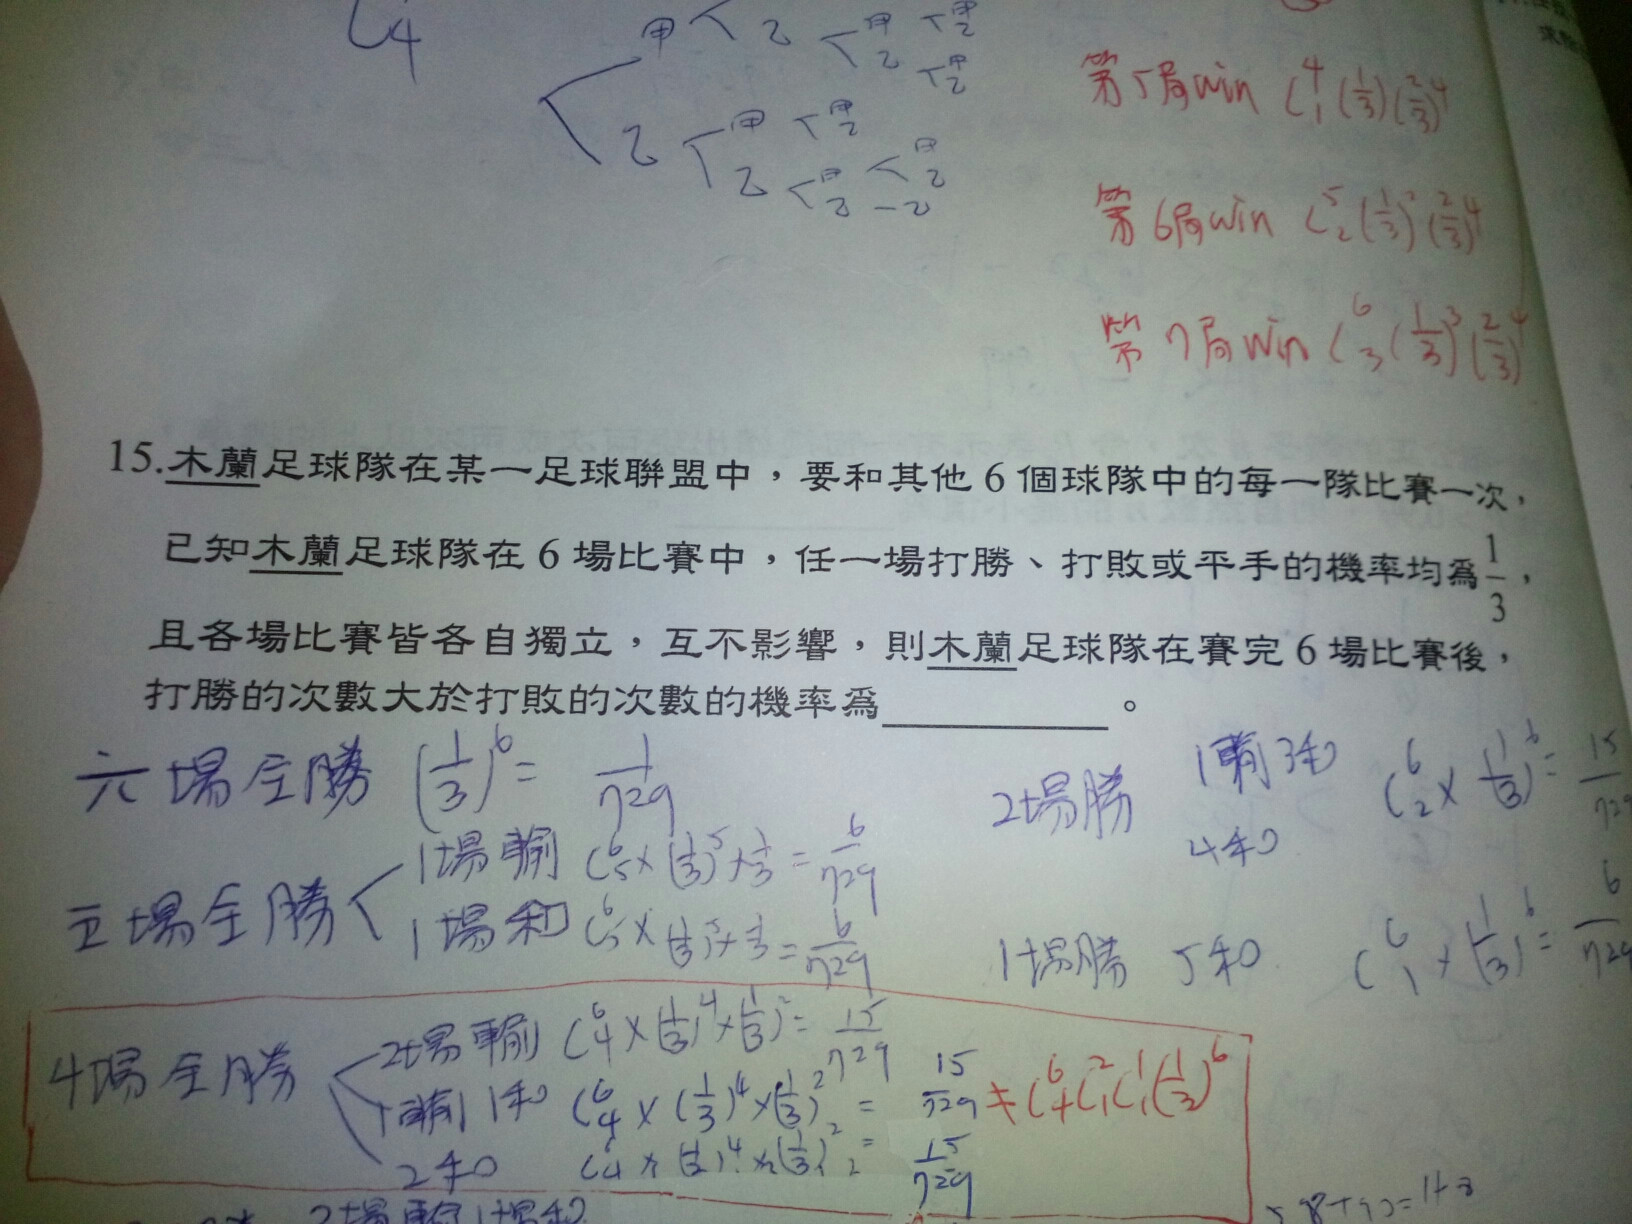 C4
甲 乙 甲 乙 甲 乙 甲 乙
乙 甲 甲 乙 乙 甲 乙 甲 乙 乙
第5局win C⁴₁(1/3)(2/3)⁴
第6局win C⁵₂(1/3)²(2/3)⁴
第7局win C⁶₃(1/3)³(2/3)⁴
15.木蘭足球隊在某一足球聯盟中，要和其他6個球隊中的每一隊比賽一次，
已知木蘭足球隊在6場比賽中，任一場打勝、打敗或平手的機率均為1/3，
且各場比賽皆各自獨立，互不影響，則木蘭足球隊在賽完6場比賽後，
打勝的次數大於打敗的次數的機率為________。
六場全勝 (1/3)⁶= 1/729
五場全勝
1場輸 C⁶₅×(1/3)⁵×1/3=6/729
1場和 C⁶₅×(1/3)⁵×1/3=6/729
4場全勝
2場輸 C⁶₄×(1/3)⁴×(1/3)²=15/729
1輸1和 C⁶₄×(1/3)⁴×(1/3)²= 15/729 ≠C⁶₄C²₁C¹₁(1/3)⁶
2和 C⁶₄×(1/3)⁴×(1/3)²= 15/729
2場輸1場和
2場勝
1輸3和 C⁶₂×(1/3)⁶=15/729
4和
1場勝 5和 C⁶₁×(1/3)⁶=6/729